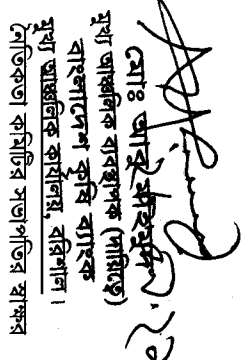 মোঃ আবু
মুখ্য আঞ্চলিক ব্যবস্থাপক (দায়িত্বে)
বাংলাদেশ কৃষি ব্যাংক
মুখ্য আঞ্চলিক কার্যালয়, বরিশাল।
নৈতিকতা কমিটির সভাপতির স্বাক্ষর